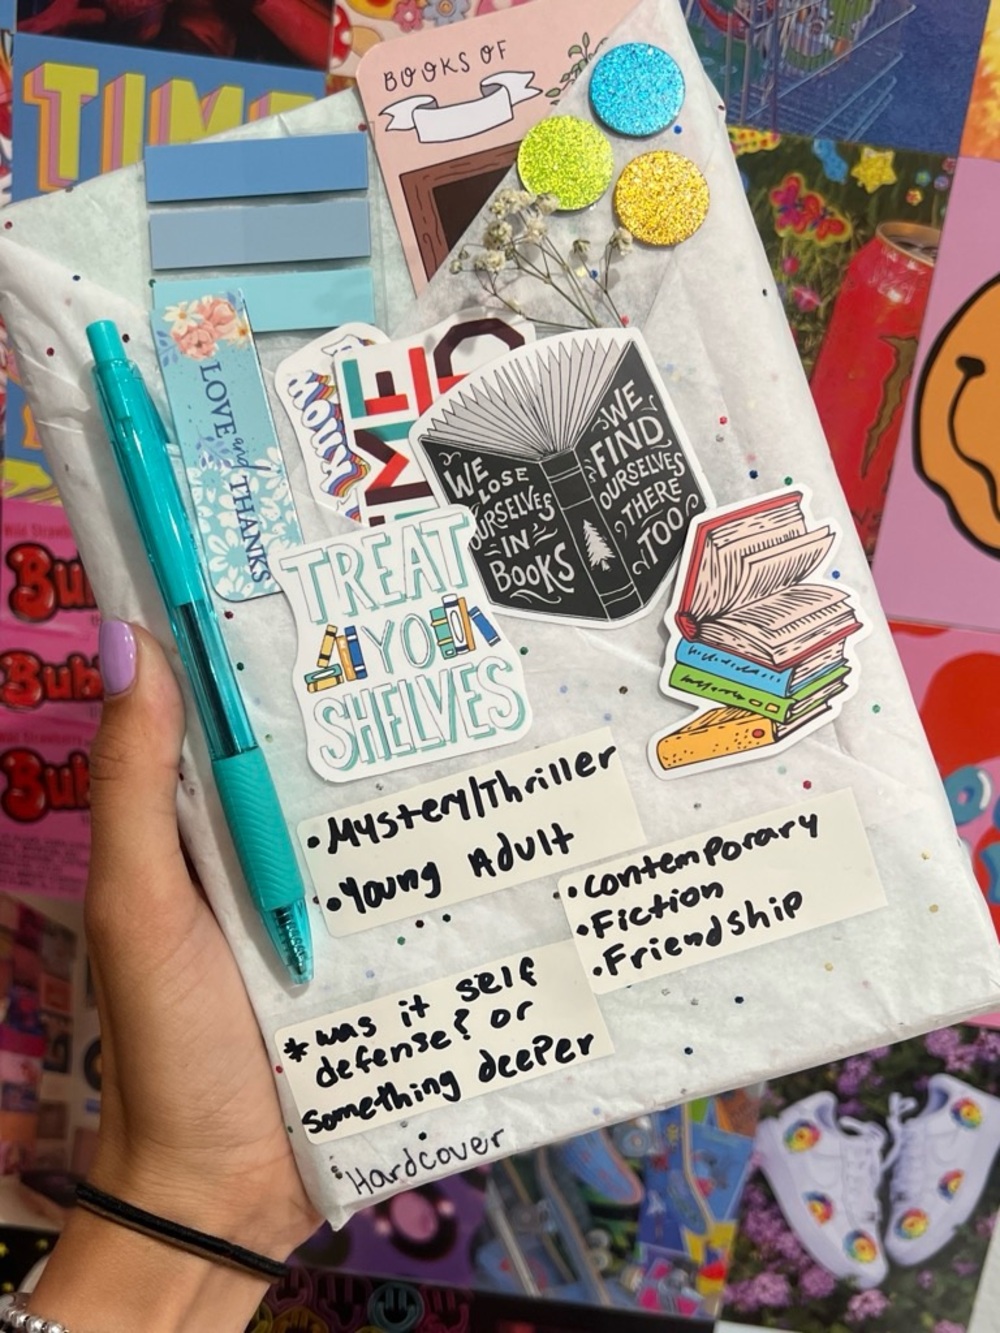 TIME
BOOKS OF
LOVE and THANKS
know
WE
LOSE
OURSELVES
IN
BOOKS
WE
FIND
OURSELVES
THERE
TOO
TREAT
YO
SHELVES
• Mystery/Thriller
• Young Adult
• contemporary
• Fiction
• Friendship
* was it self
defense? or
something deeper
Hardcover
Bu
Bub
Bub